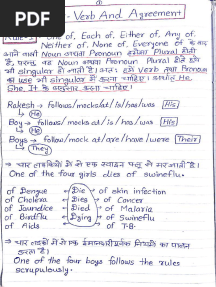 PDF
- Verb And Agreement
Rule-1 One of, Each of, Either of, Any of,
Neither of, None of, Everyone of के बाद
आने वाले Noun अथवा Pronoun हमेशा Plural होते
है, परन्तु यह Noun अथवा Pronoun Plural होते हुए
भी singular हो जाती है। अतः इसमें verb तथा Pronoun
का use भी singular में करना चाहिए।
She, It के
Rakesh → follows/mocks/at/is/has/was His
He
Boy → follows/mocks/at/is/has/was His
He
Boys → follow/mock at/are/have/were Their
They
⇒ चार लड़कियों में से एक स्वाइन फ्लू से मर जाती है।
One of the four girls dies of swineflu.
of Dengue Die of skin infection
of Cholera Dies of Cancer
of Jaundice Died of Malaria
of Birdflu Dying of Swineflu
of Aids of T.B.
⇒ चार लड़कों में से एक ईमानदारीपूर्वक नियमों का पालन
करता है।
One of the four boys follows the rules
scrupulously.